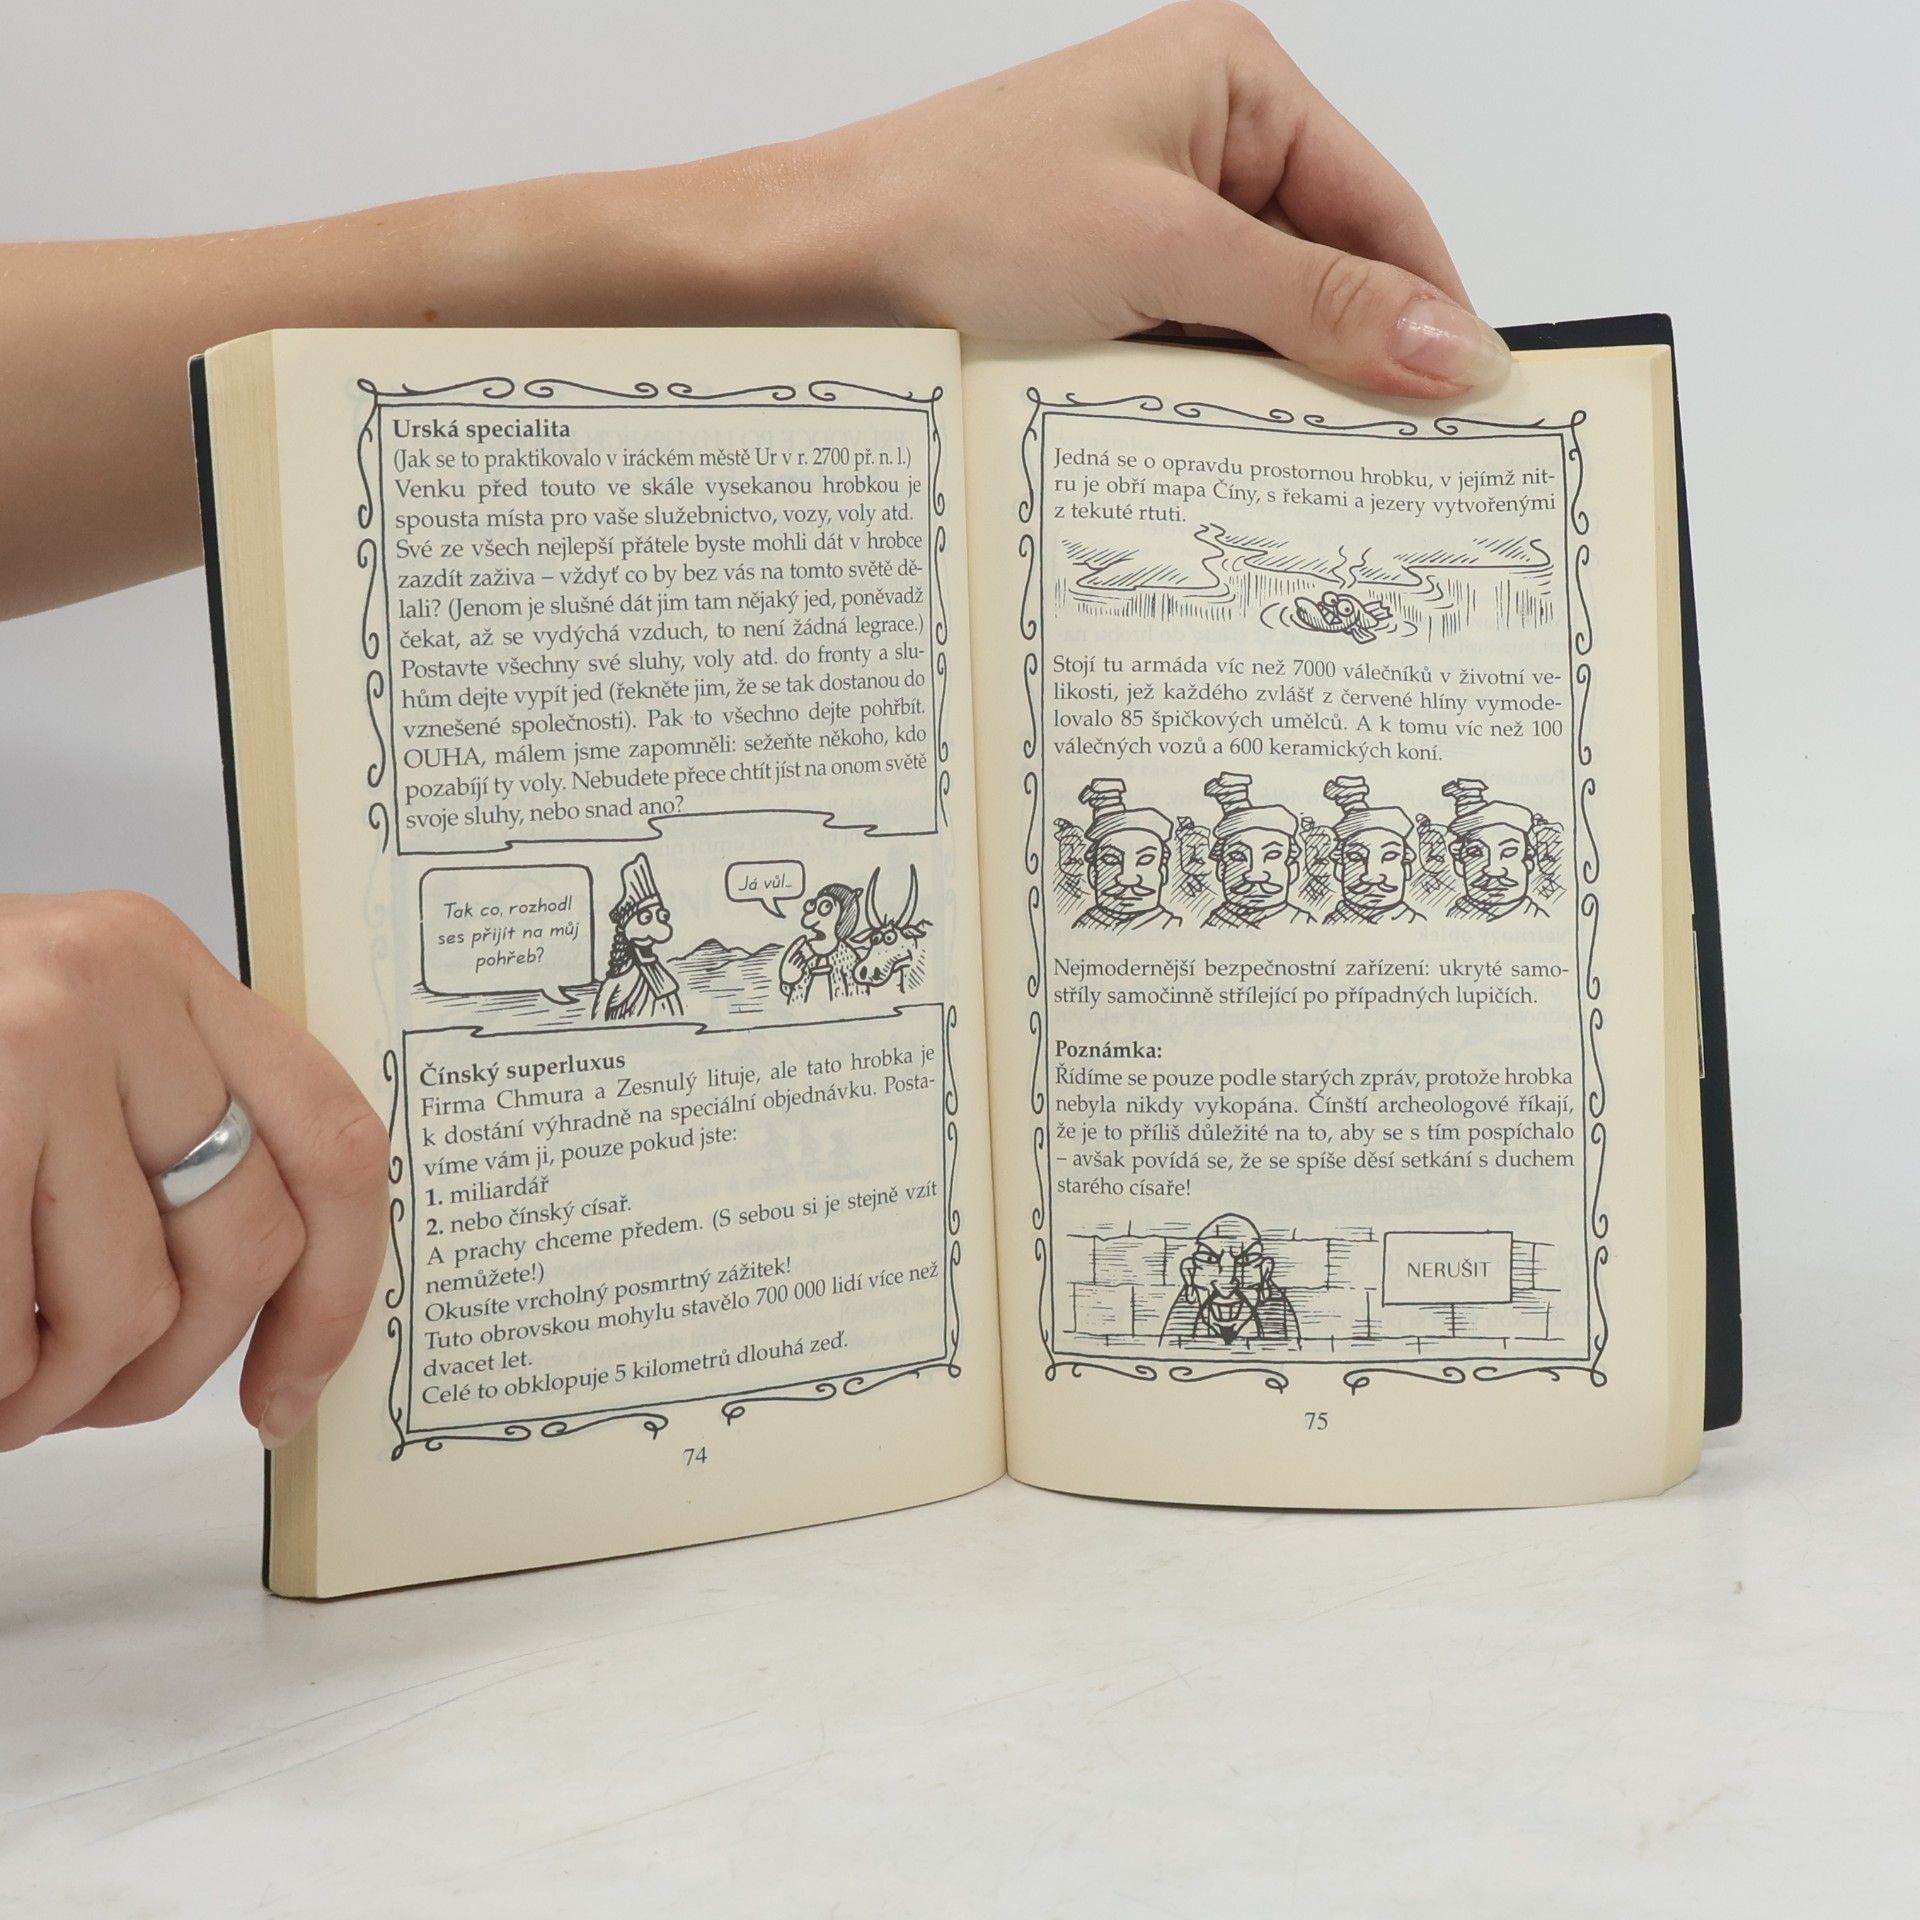 Urská specialita
(Jak se to praktikovalo v iráckém městě Ur v r. 2700 př. n. l.)
Venku před touto ve skále vysekanou hrobkou je
spousta místa pro vaše služebnictvo, vozy, voly atd.
Své ze všech nejlepší přátele byste mohli dát v hrobce
zazdít zaživa – vždyť co by bez vás na tomto světě dě-
lali? (Jenom je slušné dát jim tam nějaký jed, poněvadž
čekat, až se vydýchá vzduch, to není žádná legrace.)
Postavte všechny své sluhy, voly atd. do fronty a slu-
hům dejte vypít jed (řekněte jim, že se tak dostanou do
vznešené společnosti). Pak to všechno dejte pohřbít.
OUHA, málem jsme zapomněli: sežeňte někoho, kdo
pozabíjí ty voly. Nebudete přece chtít jíst na onom světě
svoje sluhy, nebo snad ano?
Tak co, rozhodl
ses přijít na můj
pohřeb?
Já vůl...
Čínský superluxus
Firma Chmura a Zesnulý lituje, ale tato hrobka je
k dostání výhradně na speciální objednávku. Posta-
víme vám ji, pouze pokud jste:
1. miliardář
2. nebo čínský císař.
A prachy chceme předem. (S sebou si je stejně vzít
nemůžete!)
Okusíte vrcholný posmrtný zážitek!
Tuto obrovskou mohylu stavělo 700 000 lidí více než
dvacet let.
Celé to obklopuje 5 kilometrů dlouhá zeď.
74
Jedná se o opravdu prostornou hrobku, v jejímž nit-
ru je obří mapa Číny, s řekami a jezery vytvořenými
z tekuté rtuti.
Stojí tu armáda víc než 7000 válečníků v životní ve-
likosti, jež každého zvlášť z červené hlíny vymode-
lovalo 85 špičkových umělců. A k tomu víc než 100
válečných vozů a 600 keramických koní.
Nejmodernější bezpečnostní zařízení: ukryté samo-
stříly samočinně střílející po případných lupičích.
Poznámka:
Řídíme se pouze podle starých zpráv, protože hrobka
nebyla nikdy vykopána. Čínští archeologové říkají,
že je to příliš důležité na to, aby se s tím pospíchalo
– avšak povídá se, že se spíše děsí setkání s duchem
starého císaře!
NERUŠIT
75